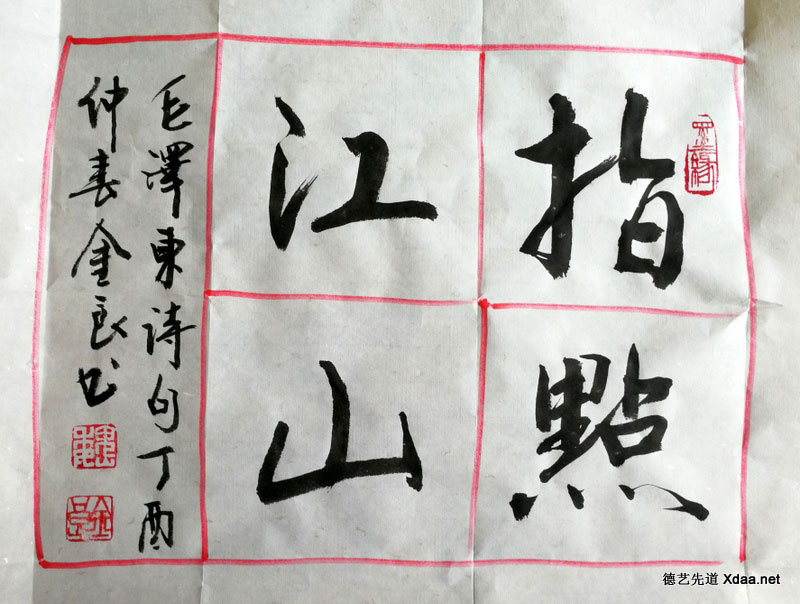 指點
江山
毛澤東詩句丁酉
仲春金良书
德艺先道 Xdaa.net